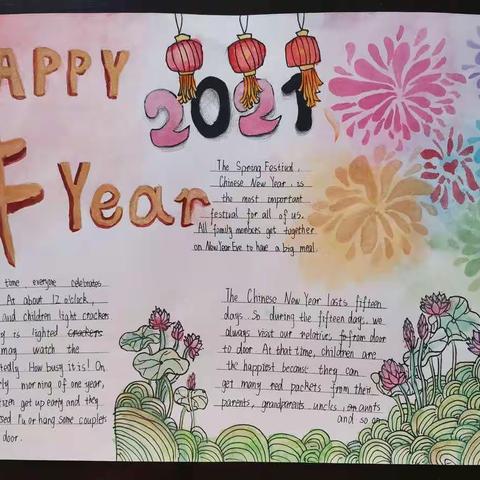 APPY
2021
Year
The Spring Festival,
Chinese New Year is
the most important
festival for all of us.
All family members get together
on New Year Eve to have a big meal.
time everyone celebrates
At about 12 o'clock,
and children light crackers
is lighted crackers
may watch the
How busy it is! On
morning of one year,
get up early and they
or hang some couplets
door.
The Chinese New Year lasts fifteen
days. So during the fifteen days, we
always visit our relatives from door
to door. At that time, children are
the happiest because they can
get many red packets from their
parents, grandparents, uncles, aunts
and so on